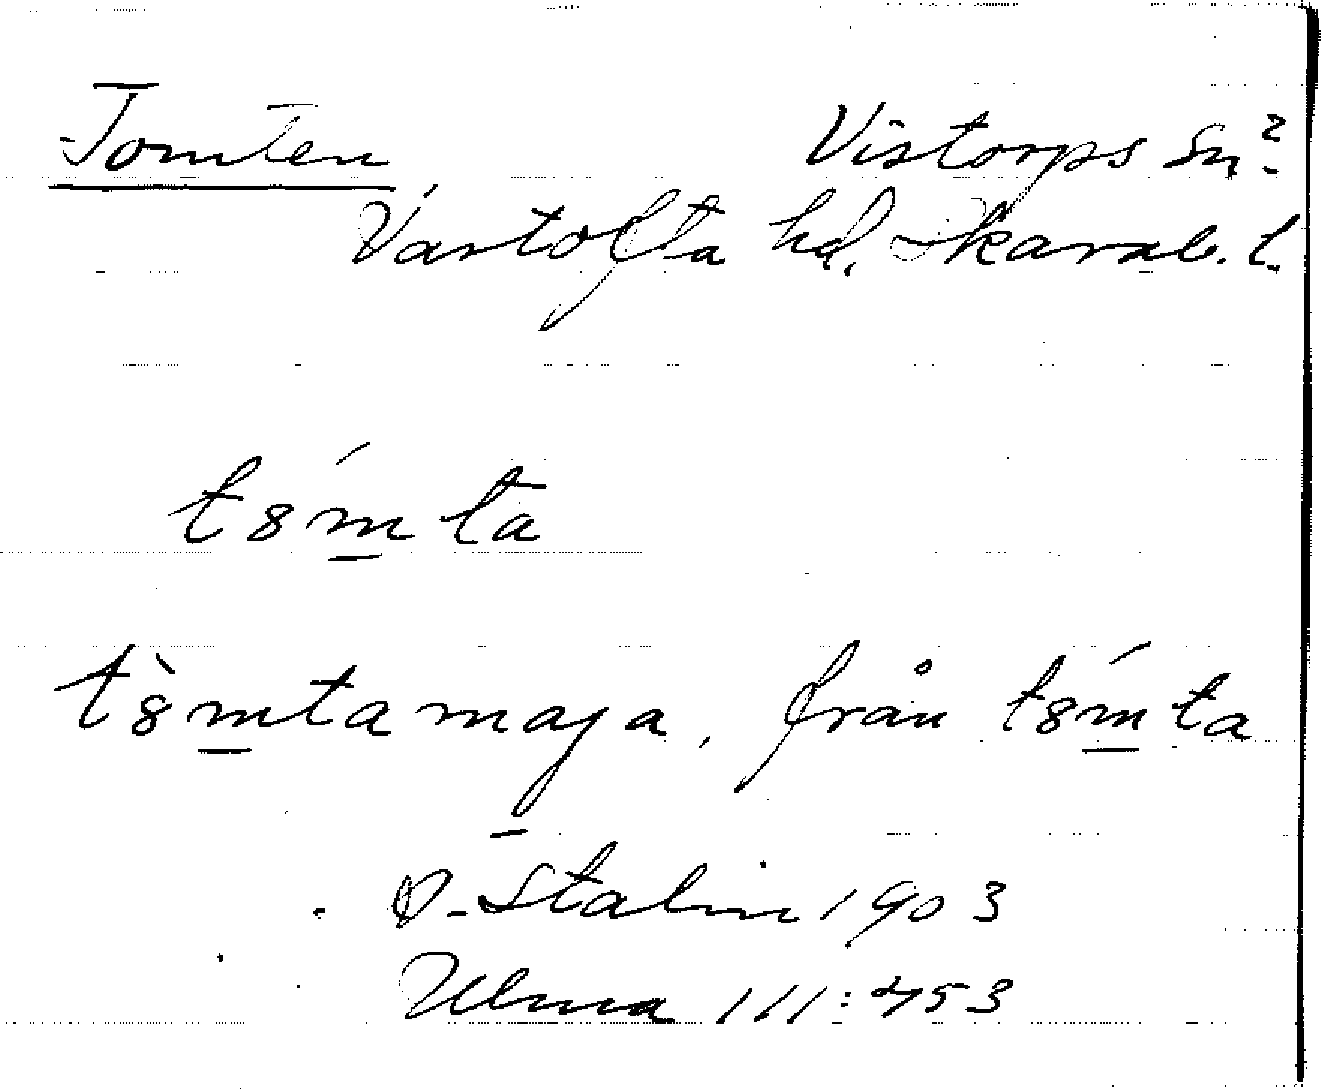 Tomten Vistorps sn?
Vartofta hd. Skarab. l.
t8ḿ̱ta
t8̀m̱tamaja, från t8ḿ̱ta
O. Stalin 1903
Ulma 111:453